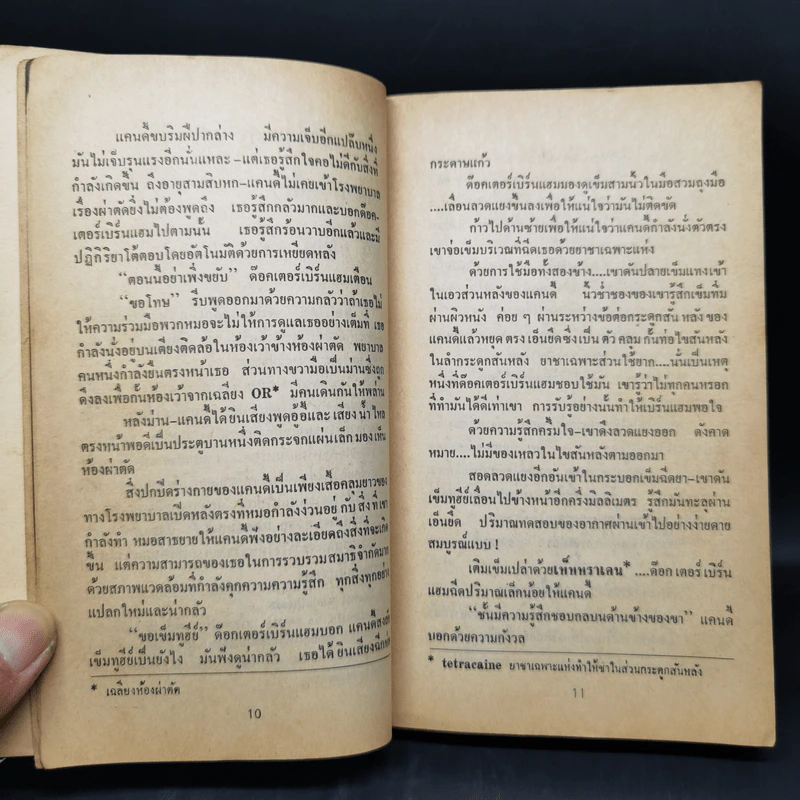 แคนดี้ขบริมฝีปากล่าง มีความเจ็บอีกแปล๊บหนึ่ง
มันไม่เจ็บรุนแรงอีกนั่นแหละ-แต่เธอรู้สึกใจคอไม่ดีกับสิ่งที่
กำลังเกิดขึ้น ถึงอายุสามสิบหก-แคนดี้ไม่เคยเข้าโรงพยาบาล
เรื่องผ่าตัดยิ่งไม่ต้องพูดถึง เธอรู้สึกกลัวมากและบอกด๊อค-
เตอร์เบิร์นแฮมไปตามนั้น เธอรู้สึกร้อนวาบอีกแล้วและมี
ปฏิกิริยาโต้ตอบโดยอัตโนมัติด้วยการเหยียดหลัง
“ตอนนี้อย่าเพิ่งขยับ” ด๊อคเตอร์เบิร์นแฮมเตือน
“ขอโทษ” รีบพูดออกมาด้วยความกลัวว่าถ้าเธอไม่
ให้ความร่วมมือพวกหมอจะไม่ให้การดูแลเธออย่างเต็มที่ เธอ
กำลังนั่งอยู่บนเตียงติดล้อในห้องเว้าข้างห้องผ่าตัด พยาบาล
คนหนึ่งกำลังยืนตรงหน้าเธอ ส่วนทางขวามือเป็นม่านซึ่งถูก
ดึงลงเพื่อกั้นห้องเว้าจากเฉลียง OR* มีคนเดินกันให้พล่าน
หลังม่าน-แคนดี้ได้ยินเสียงพูดอู้อี้และเสียงน้ำไหล
ตรงหน้าพอดีเป็นประตูบานหนึ่งติดกระจกแผ่นเล็ก มองเห็น
ห้องผ่าตัด
สิ่งปกปิดร่างกายของแคนดี้เป็นเพียงเสื้อคลุมยาวของ
ทางโรงพยาบาลเปิดหลังตรงที่หมอกำลังง่วนอยู่ กับ สิ่ง ที่ เขา
กำลังทำ หมอสาธยายให้แคนดี้ฟังอย่างละเอียดถึงสิ่งที่จะเกิด
ขึ้น แต่ความสามารถของเธอในการรวบรวมสมาธิจำกัดมาก
ด้วยสภาพแวดล้อมที่กำลังคุกความความรู้สึก ทุกสิ่งทุกอย่าง
แปลกใหม่และน่ากลัว
“ขอเข็มทูฮีย์” ด๊อคเตอร์เบิร์นแฮมบอก แคนดี้
เข็มทูฮีย์เป็นยังไง มันฟังดูน่ากลัว เธอได้ยินเสียงฉีก
* เฉลียงห้องผ่าตัด
10
กระดาษแก้ว
ด๊อคเตอร์เบิร์นแฮมมองดูเข็มสามนิ้วในมือสวมถุงมือ
....เลื่อนลวดแยงขึ้นลงเพื่อให้แน่ใจว่ามันไม่ติดขัด
ก้าวไปด้านซ้ายเพื่อให้แน่ใจว่าแคนดี้กำลังนั่งตัวตรง
เขาจ่อเข็มบริเวณที่ฉีดเธอด้วยยาชาเฉพาะแห่ง
ด้วยการใช้มือทั้งสองข้าง....เขาดันปลายเข็มแทงเข้า
ในเอวส่วนหลังของแคนดี้ นิ้วช่ำชองของเขารู้สึกเข็มทิ่ม
ผ่านผิวหนัง ค่อย ๆ ผ่านระหว่างข้อต่อกระดูกสันหลังของ
แคนดี้แล้วหยุด ตรง เอ็นยึดซึ่งเป็น ตัว คลุม กั้นท่อไขสันหลัง
ในลำกระดูกสันหลัง ยาชาเฉพาะส่วนใช้ยาก....นั่นเป็นเหตุ
หนึ่งที่ด๊อคเตอร์เบิร์นแฮมชอบใช้มัน เขารู้ว่าไม่ทุกคนหรอก
ที่ทำมันได้ดีเท่าเขา การรับรู้อย่างนั้นทำให้เบิร์นแฮมพอใจ
ด้วยความรู้สึกครึ้มใจ-เขาดึงลวดแยงออก ดังคาด
หมาย....ไม่มีของเหลวในไขสันหลังตามออกมา
สอดลวดแยงอีกอันเข้าในกระบอกเข็มฉีดยา-เขาดัน
เข็มทูฮีย์เลื่อนไปข้างหน้าอีกครึ่งมิลลิเมตร รู้สึกมันทะลุผ่าน
เอ็นยึด ปริมาณทดสอบของอากาศผ่านเข้าไปอย่างง่ายดาย
สมบูรณ์แบบ !
เติมเข็มเปล่าด้วยเท็ททราเคน*....ด๊อคเตอร์ เบิร์น
แฮมฉีดปริมาณเล็กน้อยให้แคนดี้
“ชั้นมีความรู้สึกชอบกลบนด้านข้างของขา” แคนดี้
บอกด้วยความกังวล
* tetracaine ยาชาเฉพาะแห่งทำให้ชาในส่วนกระดูกสันหลัง
11